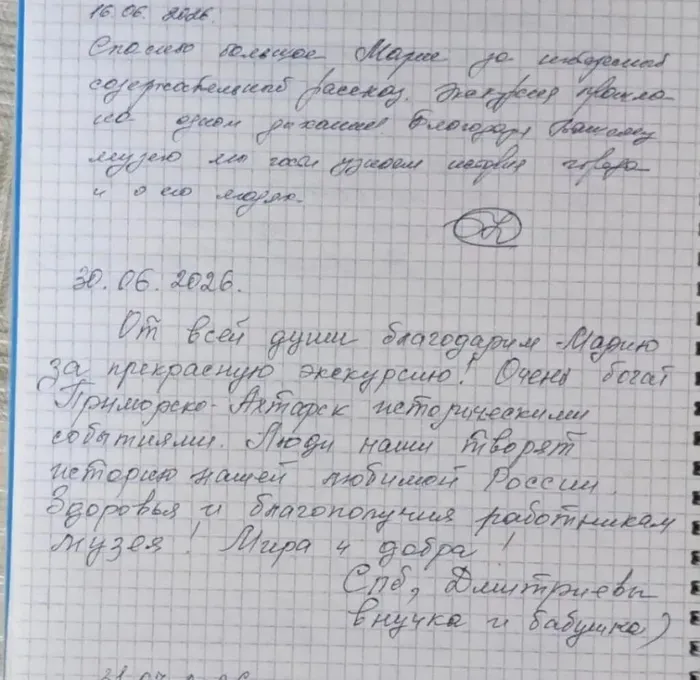 16.06.2026.
Спасибо большое Марие за интересный
содержательный рассказ. Экскурсия прошла
на одном дыхание. Благодаря Вашему
музею мы гости узнаем историю города
и о его людях.
30.06.2026.
От всей души благодарим Марию
за прекрасную экскурсию! Очень богат
Приморско-Ахтарск историческими
событиями. Люди наши творят
историю нашей любимой России.
Здоровья и благополучия работникам
музея! Мира и добра!
Спб, Дмитриевы
внучка и бабушка)